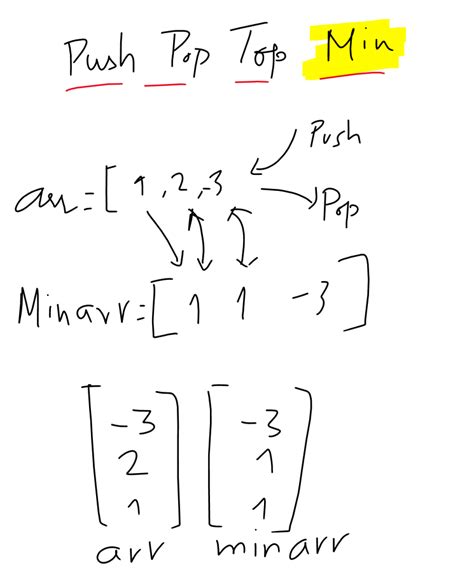 Push Pop Top Min
Push
arr=[ 1, 2, -3
Pop
Minarr=[ 1 1 -3 ]
[ -3 ] [ -3 )
2 1
1 1
arr minarr